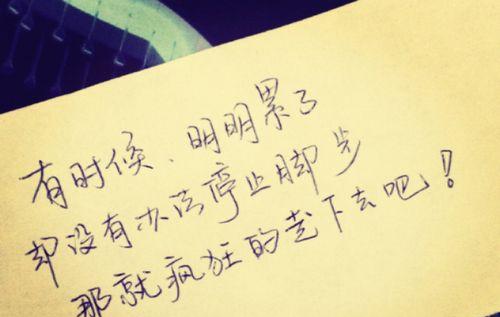 有时候、明明累了
却没有办法停止脚步
那就疯狂的走下去吧！